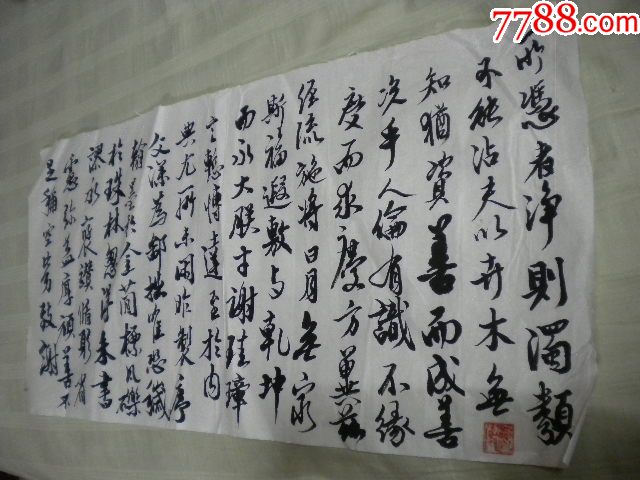 7788.com
所憑者淨則濁類
不能沾夫以卉木無
知猶資善而成善
況乎人倫有識不緣
慶而求慶方冀茲
經流施將日月無窮
斯福遐敷与乾坤
而永大朕才謝珪璋
言慙博達至於內
典尤所未閑昨製序
文深為鄙拙唯恐穢
翰墨於金簡標瓦礫
於珠林忽得来書
謬承褒讚循躬省
慮弥益厚顏善不
足稱空勞致謝